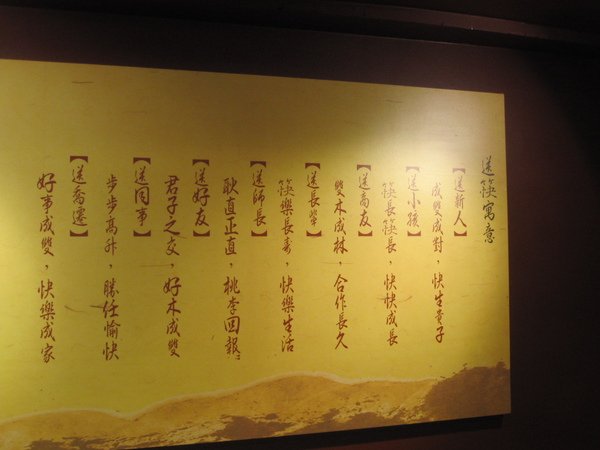 送筷寓意
【送新人】
成雙成對，快生貴子
【送小孩】
筷長筷長，快快成長
【送商友】
雙木成林，合作長久
【送長輩】
筷樂長壽，快樂生活
【送師長】
耿直正直，桃李回報
【送好友】
君子之交，好木成雙
【送同事】
步步高升，勝任愉快
【送喬遷】
好事成雙，快樂成家